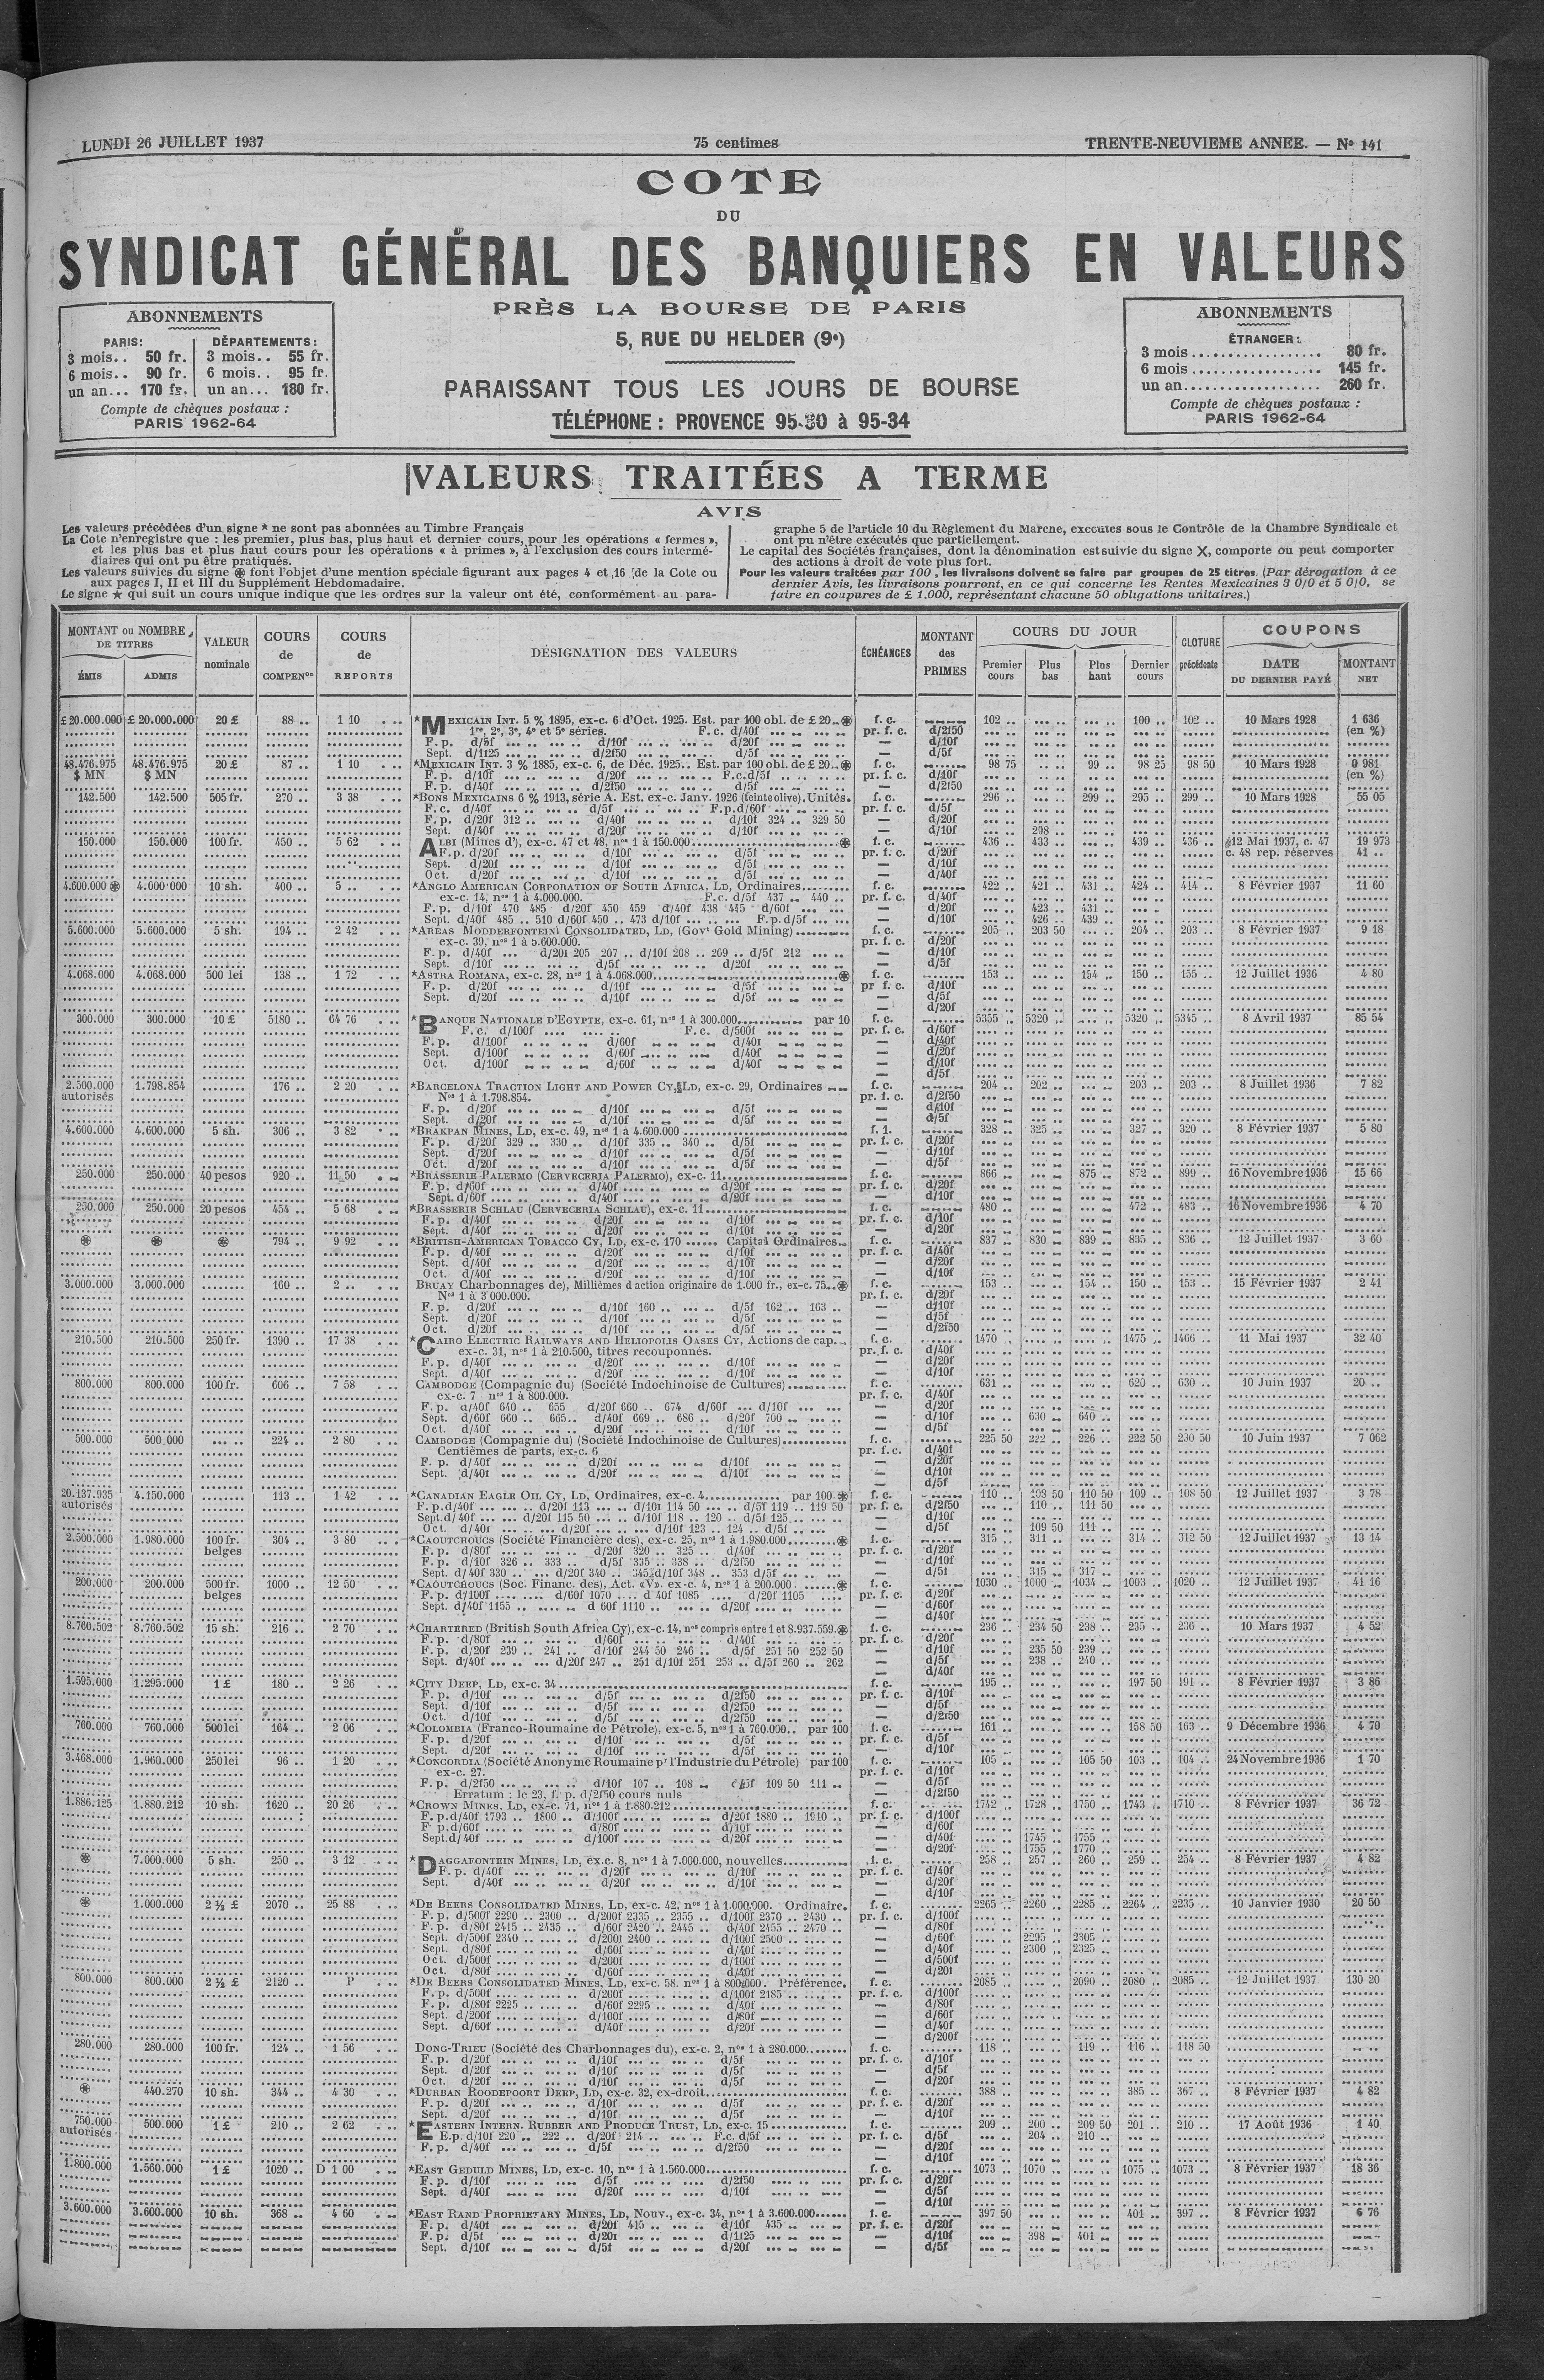 LUNDI 26 JUILLET 1937
75 centimes
TRENTE-NEUVIEME ANNEE. — No 141
COTE
DU
SYNDICAT GÉNÉRAL DES BANQUIERS EN VALEURS
PRÈS LA BOURSE DE PARIS
5, RUE DU HELDER (9e)
PARAISSANT TOUS LES JOURS DE BOURSE
TÉLÉPHONE : PROVENCE 95-30 à 95-34
ABONNEMENTS
PARIS: DÉPARTEMENTS:
3 mois.. 50 fr. 3 mois.. 55 fr.
6 mois.. 90 fr. 6 mois.. 95 fr.
un an... 170 fr. un an... 180 fr.
Compte de chèques postaux :
PARIS 1962-64
ABONNEMENTS
ÉTRANGER :
3 mois.................. 80 fr.
6 mois.................. 145 fr.
un an................... 260 fr.
Compte de chèques postaux :
PARIS 1962-64
VALEURS TRAITÉES A TERME
AVIS
Les valeurs précédées d'un signe * ne sont pas abonnées au Timbre Français
La Cote n'enregistre que : les premier, plus bas, plus haut et dernier cours, pour les opérations « fermes »,
et les plus bas et plus haut cours pour les opérations « à primes », à l'exclusion des cours intermé-
diaires qui ont pu être pratiqués.
Les valeurs suivies du signe ⊛ font l'objet d'une mention spéciale figurant aux pages 4 et 16 de la Cote ou
aux pages I, II et III du Supplément Hebdomadaire.
Le signe ★ qui suit un cours unique indique que les ordres sur la valeur ont été, conformément au para-
graphe 5 de l'article 10 du Règlement du Marche, executes sous le Contrôle de la Chambre Syndicale et
ont pu n'être exécutés que partiellement.
Le capital des Sociétés françaises, dont la dénomination est suivie du signe X, comporte ou peut comporter
des actions à droit de vote plus fort.
Pour les valeurs traitées par 100, les livraisons doivent se faire par groupes de 25 titres. (Par dérogation à ce
dernier Avis, les livraisons pourront, en ce qui concerne les Rentes Mexicaines 3 0/0 et 5 0/0, se
faire en coupures de £ 1.000, représentant chacune 50 obligations unitaires.)
MONTANT ou NOMBRE DE TITRES
ÉMIS ADMIS
VALEUR nominale
COURS de COMPENon
COURS de REPORTS
DÉSIGNATION DES VALEURS
ÉCHÉANCES
MONTANT des PRIMES
COURS DU JOUR
Premier cours Plus bas Plus haut Dernier cours
CLOTURE précédente
COUPONS
DATE DU DERNIER PAYÉ
MONTANT NET
£ 20.000.000 £ 20.000.000 20 £ 88 .. 1 10 *MEXICAIN INT. 5 % 1895, ex-c. 6 d'Oct. 1925. Est. par 100 obl. de £ 20 ⊛ f. c. 102 .. 100 .. 102 .. 10 Mars 1928 1 636
1re, 2e, 3e, 4e et 5e séries. F. c. d/40f pr. f. c. d/2f50 (en %)
F. p. d/5f d/10f d/20f — d/10f
Sept. d/1f25 d/2f50 d/5f — d/5f
48.476.975 48.476.975 20 £ 87 .. 1 10 *MEXICAIN INT. 3 % 1885, ex-c. 6, de Déc. 1925.. Est. par 100 obl. de £ 20 ⊛ f. c. 98 75 99 .. 98 25 98 50 10 Mars 1928 0 981
$ MN $ MN F. p. d/10f d/20f F.c.d/5f pr. f. c. d/10f (en %)
F. p. d/40f d/2f50 d/5f — d/2f50
142.500 142.500 505 fr. 270 .. 3 38 *BONS MEXICAINS 6 % 1913, série A. Est. ex-c. Janv. 1926 (feinte olive). Unités. f. c. 296 .. 299 .. 295 .. 299 .. 10 Mars 1928 55 05
F. c. d/40f d/5f F.p.d/60f pr. f. c. d/5f
F. p. d/20f 312 .. d/40f d/10f 324 .. 329 50 — d/20f
Sept. d/40f d/20f d/10f — d/10f 298 ..
150.000 150.000 100 fr. 450 .. 5 62 ALBI (Mines d'), ex-c. 47 et 48, nos 1 à 150.000 ⊛ f. c. 436 .. 433 .. 439 .. 436 .. 12 Mai 1937, c. 47 19 973
F. p. d/20f d/10f d/5f pr. f. c. d/20f c. 48 rep. réserves 41 ..
Sept. d/20f d/10f d/5f — d/10f
Oct. d/20f d/10f d/5f — d/40f
4.600.000 ⊛ 4.000.000 10 sh. 400 .. 5 .. *ANGLO AMERICAN CORPORATION OF SOUTH AFRICA, LD, Ordinaires f. c. 422 .. 421 .. 431 .. 424 .. 414 .. 8 Février 1937 11 60
ex-c. 14, nos 1 à 4.000.000. F.c. d/5f 437 .. 440 .. pr. f. c. d/40f
F. p. d/10f 470 485 d/20f 450 459 d/40f 438 445 d/60f — d/20f 423 .. 431 ..
Sept. d/40f 485 .. 510 d/60f 450 .. 473 d/10f F.p.d/5f — d/10f 426 .. 439 ..
5.600.000 5.600.000 5 sh. 194 .. 2 42 *AREAS MODDERFONTEIN CONSOLIDATED, LD, (Govt Gold Mining) f. c. 205 .. 203 50 204 .. 203 .. 8 Février 1937 9 18
ex-c. 39, nos 1 à 5.600.000. pr. f. c. d/20f
F. p. d/40f d/20f 205 207 .. d/10f 208 .. 269 .. d/5f 212 — d/10f
Sept. d/10f d/5f d/20f — d/5f
4.068.000 4.068.000 500 lei 138 .. 1 72 *ASTRA ROMANA, ex-c. 28, nos 1 à 4.068.000 ⊛ f. c. 153 .. 154 .. 150 .. 155 .. 12 Juillet 1936 4 80
F. p. d/20f d/10f d/5f pr f. c. d/10f
Sept. d/20f d/10f d/5f — d/5f
— d/20f
300.000 300.000 10 £ 5180 .. 64 76 *BANQUE NATIONALE D'EGYPTE, ex-c. 61, nos 1 à 300.000 par 10 f. c. 5355 .. 5320 .. 5320 .. 5345 .. 8 Avril 1937 85 54
F. c. d/100f F. c. d/500f pr. f. c. d/60f
F. p. d/100f d/60f d/40f — d/40f
Sept. d/100f d/60f d/40f — d/20f
Oct. d/100f d/60f d/40f — d/10f
— d/5f
2.500.000 1.798.854 176 .. 2 20 *BARCELONA TRACTION LIGHT AND POWER CY, LD, ex-c. 29, Ordinaires f. c. 204 .. 202 .. 203 .. 203 .. 8 Juillet 1936 7 82
autorisés Nos 1 à 1.798.854. pr. f. c. d/2f50
F. p. d/20f d/10f d/5f — d/10f
Sept. d/20f d/10f d/5f — d/5f
4.600.000 4.600.000 5 sh. 306 .. 3 82 *BRAKPAN MINES, LD, ex-c. 49, nos 1 à 4.600.000 f. 1. 328 .. 325 .. 327 .. 320 .. 8 Février 1937 5 80
F. p. d/20f 329 .. 330 .. d/10f 335 .. 340 .. d/5f pr. f. c. d/20f
Sept. d/20f d/10f d/5f — d/10f
Oct. d/20f d/10f d/5f — d/5f
250.000 250.000 40 pesos 920 .. 11 50 *BRASSERIE PALERMO (CERVECERIA PALERMO), ex-c. 11 f. c. 866 .. 875 .. 872 .. 899 .. 16 Novembre 1936 15 66
F. p. d/60f d/40f d/20f pr. f. c. d/20f
Sept. d/60f d/40f d/20f — d/10f
250.000 250.000 20 pesos 454 .. 5 68 *BRASSERIE SCHLAU (CERVECERIA SCHLAU), ex-c. 11 f. c. 480 .. 472 .. 483 .. 16 Novembre 1936 4 70
F. p. d/40f d/20f d/10f pr. f. c. d/10f
Sept. d/40f d/20f d/10f — d/20f
⊛ ⊛ ⊛ 794 .. 9 92 *BRITISH-AMERICAN TOBACCO CY, LD, ex-c. 170 ...... Capital Ordinaires f. c. 837 .. 830 .. 839 .. 835 .. 836 .. 12 Juillet 1937 3 60
F. p. d/40f d/20f d/10f pr. f. c. d/40f
Sept. d/40f d/20f d/10f — d/20f
Oct. d/40f d/20f d/10f — d/10f
3.000.000 3.000.000 160 .. 2 .. BRUAY Charbonnages de), Millièmes d action originaire de 1.000 fr., ex-c. 75 ⊛ f. c. 153 .. 154 .. 150 .. 153 .. 15 Février 1937 2 41
Nos 1 à 3 000.000. pr. f. c. d/20f
F. p. d/20f d/10f 160 .. d/5f 162 .. 163 .. — d/10f
Sept. d/20f d/10f d/5f — d/5f
Oct. d/20f d/10f d/5f — d/2f50
210.500 210.500 250 fr. 1390 .. 17 38 *CAIRO ELECTRIC RAILWAYS AND HELIOPOLIS OASES CY, Actions de cap. f. c. 1470 1475 .. 1466 .. 11 Mai 1937 32 40
ex-c. 31, nos 1 à 210.500, titres recouponnés. pr. f. c. d/40f
F. p. d/40f d/20f d/10f — d/20f
Sept. d/40f d/20f d/10f — d/10f
800.000 800.000 100 fr. 606 .. 7 58 CAMBODGE (Compagnie du) (Société Indochinoise de Cultures) f. c. 631 .. 620 .. 630 .. 10 Juin 1937 20 ..
ex-c. 7 nos 1 à 800.000. pr. f. c. d/40f
F. p. d/40f 640 .. 655 d/20f 660 .. 674 d/60f d/10f — d/20f
Sept. d/60f 660 .. 665.. d/40f 669 .. 686 .. d/20f 700 — d/10f 630 .. 640 ..
Oct. d/40f d/20f d/10f — d/5f
500.000 500 000 224 .. 2 80 CAMBODGE (Compagnie du) (Société Indochinoise de Cultures) f. c. 225 50 222 .. 226 .. 222 50 230 50 10 Juin 1937 7 062
Centièmes de parts, ex-c. 6 pr. f. c. d/40f
F. p. d/40f d/20f d/10f — d/20f
Sept. d/40f d/20f d/10f — d/10f
— d/5f
20.137.935 4.150.000 113 .. 1 42 *CANADIAN EAGLE OIL CY, LD, Ordinaires, ex-c. 4 par 100 ⊛ f. c. 110 .. 108 50 110 50 109 .. 108 50 12 Juillet 1937 3 78
autorisés F. p. d/40f d/20f 113 d/10f 114 50 d/5f 119 .. 119 50 pr. f. c. d/2f50 110 .. 111 50
Sept. d/40f d/20f 115 50 d/10f 118 .. 120 .. d/5f 125 — d/10f
Oct. d/40f d/20f d/10f 123 .. 124 .. d/5f — d/5f 109 50 111 ..
2.500.000 1.980.000 100 fr. 304 .. 3 80 *CAOUTCHOUCS (Société Financière des), ex-c. 25, nos 1 à 1.980.000 ⊛ f. c. 315 .. 311 .. 314 .. 312 50 12 Juillet 1937 13 14
belges F. p. d/80f d/20f 320 .. 325 .. d/40f pr. f. c. d/20f
F. p. d/10f 326 .. 333 .. d/5f 335 .. 338 .. d/2f50 — d/10f
Sept. d/40f 330 .. d/20f 340 .. 345 d/10f 348 .. 353 d/5f — d/5f 315 .. 317 ..
200.000 200.000 500 fr. 1000 .. 12 50 *CAOUTCHOUCS (Soc. Financ. des), Act. «V». ex-c. 4, nos 1 à 200.000 ⊛ f. c. 1030 .. 1000 .. 1034 .. 1003 .. 1020 .. 12 Juillet 1937 41 16
belges F. p. d/100f d/60f 1070 d 40f 1085 d/20f 1105 pr. f. c. d/20f
Sept. d/40f 1155 d 60f 1110 d/20f — d/60f
— d/40f
8.760.502 8.760.502 15 sh. 216 .. 2 70 *CHARTERED (British South Africa Cy), ex-c. 14, nos compris entre 1 et 8.937.559. ⊛ f. c. 236 .. 234 50 238 .. 235 .. 236 .. 10 Mars 1937 4 52
F. p. d/80f d/60f d/40f pr. f. c. d/20f
F. p. d/20f 239 .. 241 .. d/10f 244 50 246 .. d/5f 251 50 252 50 — d/10f 235 50 239 ..
Sept. d/40f d/20f 247 .. 251 d/10f 251 253 .. d/5f 260 .. 262 — d/5f 238 .. 240 ..
— d/40f
1.595.000 1.295.000 1 £ 180 .. 2 26 *CITY DEEP, LD, ex-c. 34 f. c. 195 .. 197 50 191 .. 8 Février 1937 3 86
F. p. d/10f d/5f d/2f50 pr. f. c. d/10f
Sept. d/10f d/5f d/2f50 — d/5f
Oct. d/10f d/5f d/2f50 — d/2f50
760.000 760.000 500 lei 164 .. 2 06 *COLOMBIA (Franco-Roumaine de Pétrole), ex-c. 5, nos 1 à 760.000.. par 100 f. c. 161 .. 158 50 163 .. 9 Décembre 1936 4 70
F. p. d/20f d/10f d/5f pr. f. c. d/5f
Sept. d/20f d/10f d/5f — d/10f
3.468.000 1.960.000 250 lei 96 .. 1 20 *CONCORDIA (Société Anonyme Roumaine pr l'Industrie du Pétrole) par 100 f. c. 105 .. 105 50 103 .. 104 .. 24 Novembre 1936 1 70
ex-c. 27. pr. f. c. d/10f
F. p. d/2f50 d/10f 107 .. 108 .. d/5f 109 50 111 .. — d/5f
Erratum : le 23, f. p. d/2f50 cours nuls — d/2f50
1.886.125 1.880.212 10 sh. 1620 .. 20 26 *CROWN MINES. LD, ex-c. 71, nos 1 à 1.880.212 f. c. 1742 .. 1728 .. 1750 .. 1743 .. 1710 .. 8 Février 1937 36 72
F. p. d/40f 1793 .. 1800 .. d/100f d/20f 1880 .. 1910 pr. f. c. d/100f
F p. d/60f d/80f d/10f — d/60f
Sept. d/40f d/100f d/20f — d/40f 1745 .. 1755 ..
— d/20f 1755 .. 1770 ..
⊛ 7.000.000 5 sh. 250 .. 3 12 *DAGGAFONTEIN MINES, LD, ex.c. 8, nos 1 à 7.000.000, nouvelles f. c. 258 .. 257 .. 260 .. 259 .. 254 .. 8 Février 1937 4 82
F. p. d/40f d/20f d/10f pr. f. c. d/40f
Sept. d/40f d/20f d/10f — d/20f
— d/10f
⊛ 1.000.000 2 ½ £ 2070 .. 25 88 *DE BEERS CONSOLIDATED MINES, LD, ex-c. 42, nos 1 à 1.000.000. Ordinaire. f. c. 2265 .. 2260 .. 2285 .. 2264 .. 2235 .. 10 Janvier 1930 20 50
F. p. d/500f 2290 .. 2300 .. d/200f 2335 .. 2355 .. d/100f 2370 .. 2430 .. pr. f. c. d/100f
F. p. d/80f 2415 .. 2435 .. d/60f 2420 .. 2445 .. d/40f 2455 .. 2470 .. — d/80f
Sept. d/500f 2340 d/200f 2400 d/100f 2500 — d/60f 2295 .. 2305 ..
Sept. d/80f d/60f d/40f — d/40f 2300 .. 2325 ..
Oct. d/500f d/200f d/100f — d/500f
Oct. d/80f d/60f d/40f — d/20f
800.000 800.000 2 ½ £ 2120 .. P *DE BEERS CONSOLIDATED MINES, LD, ex-c. 58. nos 1 à 800.000. Préférence. f. c. 2085 .. 2090 .. 2080 .. 2085 .. 12 Juillet 1937 130 20
F. p. d/500f d/200f d/100f 2185 pr. f. c. d/100f
F. p. d/80f 2225 d/60f 2295 d/40f — d/80f
Sept. d/200f d/100f d/80f — d/60f
Sept. d/60f d/40f d/20f — d/40f
— d/200f
280.000 280.000 100 fr. 124 .. 1 56 DONG-TRIEU (Société des Charbonnages du), ex-c. 2, nos 1 à 280.000 f. c. 118 .. 119 .. 116 .. 118 50
F. p. d/20f d/10f d/5f pr. f. c. d/10f
Sept. d/20f d/10f d/5f — d/5f
Oct. d/20f d/10f d/5f — d/20f
⊛ 440.270 10 sh. 344 .. 4 30 *DURBAN ROODEPOORT DEEP, LD, ex-c. 32, ex-droit f. c. 388 .. 385 .. 367 .. 8 Février 1937 4 82
F. p. d/20f d/10f d/5f pr. f. c. d/20f
Sept. d/20f d/10f d/5f — d/10f
750.000 500.000 1 £ 210 .. 2 62 *EASTERN INTERN. RUBBER AND PRODUCE TRUST, LD, ex-c. 15 f. c. 209 .. 200 .. 209 50 201 .. 210 .. 17 Août 1936 1 40
autorisés E.p. d/10f 220 .. 222 .. d/20f 214 F.c. d/5f pr. f. c. d/5f 204 .. 210 ..
F. p. d/40f d/5f d/2f50 — d/20f
— d/10f
1.800.000 1.560.000 1 £ 1020 .. D 1 00 *EAST GEDULD MINES, LD, ex-c. 10, nos 1 à 1.560.000 f. c. 1073 .. 1070 .. 1075 .. 1073 .. 8 Février 1937 18 36
F. p. d/10f d/5f d/2f50 pr. f. c. d/20f
Sept. d/40f d/20f d/10f — d/5f
— d/10f
3.600.000 3.600.000 10 sh. 368 .. 4 60 *EAST RAND PROPRIETARY MINES, LD, Nouv., ex-c. 34, nos 1 à 3.600.000 f. c. 397 50 401 .. 397 .. 8 Février 1937 6 76
F. p. d/40f d/20f 415 d/10f 435 pr. f. c. d/20f
F. p. d/5f d/20f d/1f25 — d/10f 398 .. 401 ..
Sept. d/10f d/5f d/20f — d/5f